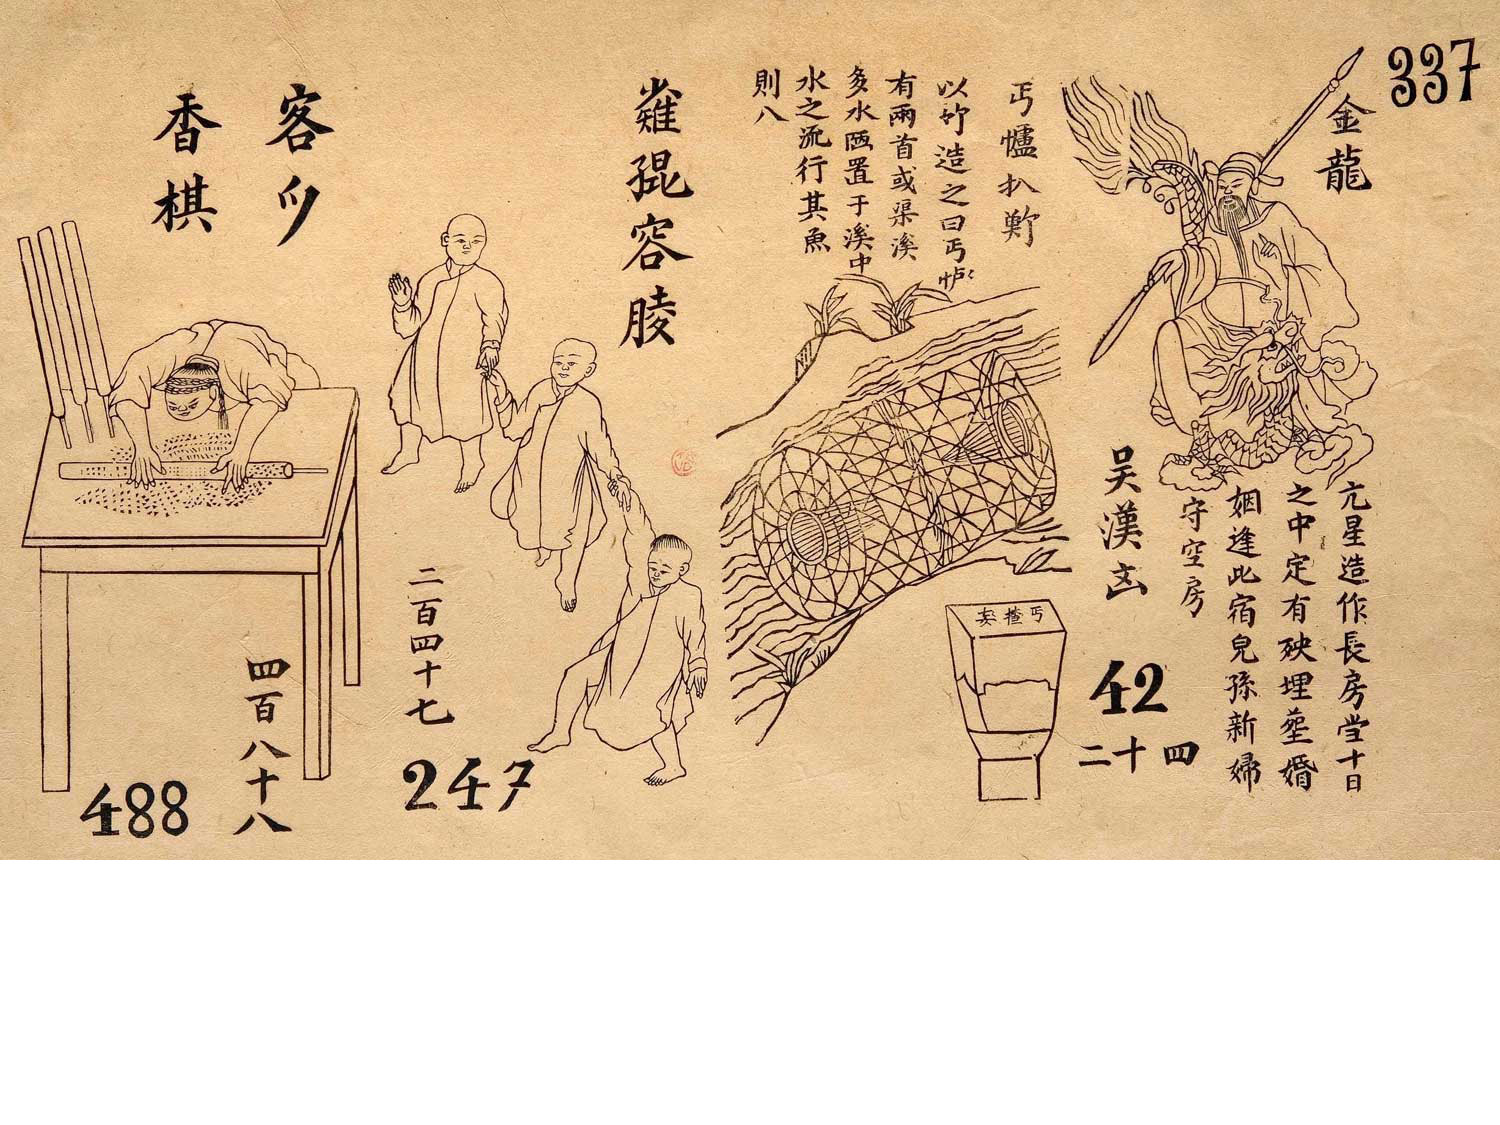 337
金龍
亢星造作長房堂十日
之中定有殃埋塟婚
姻逢此宿兒孫新婦
守空房
吴漢
42
四十二
丐爐扒
以竹造之曰丐
有兩首或渠溪
多水陋置于溪中
水之流行其魚
則八
丐揸
容
二百四十七
247
客
香棋
四百八十八
488